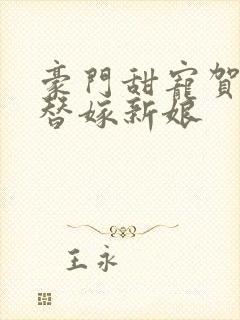 豪門甜寵賀
替嫁新娘
王永